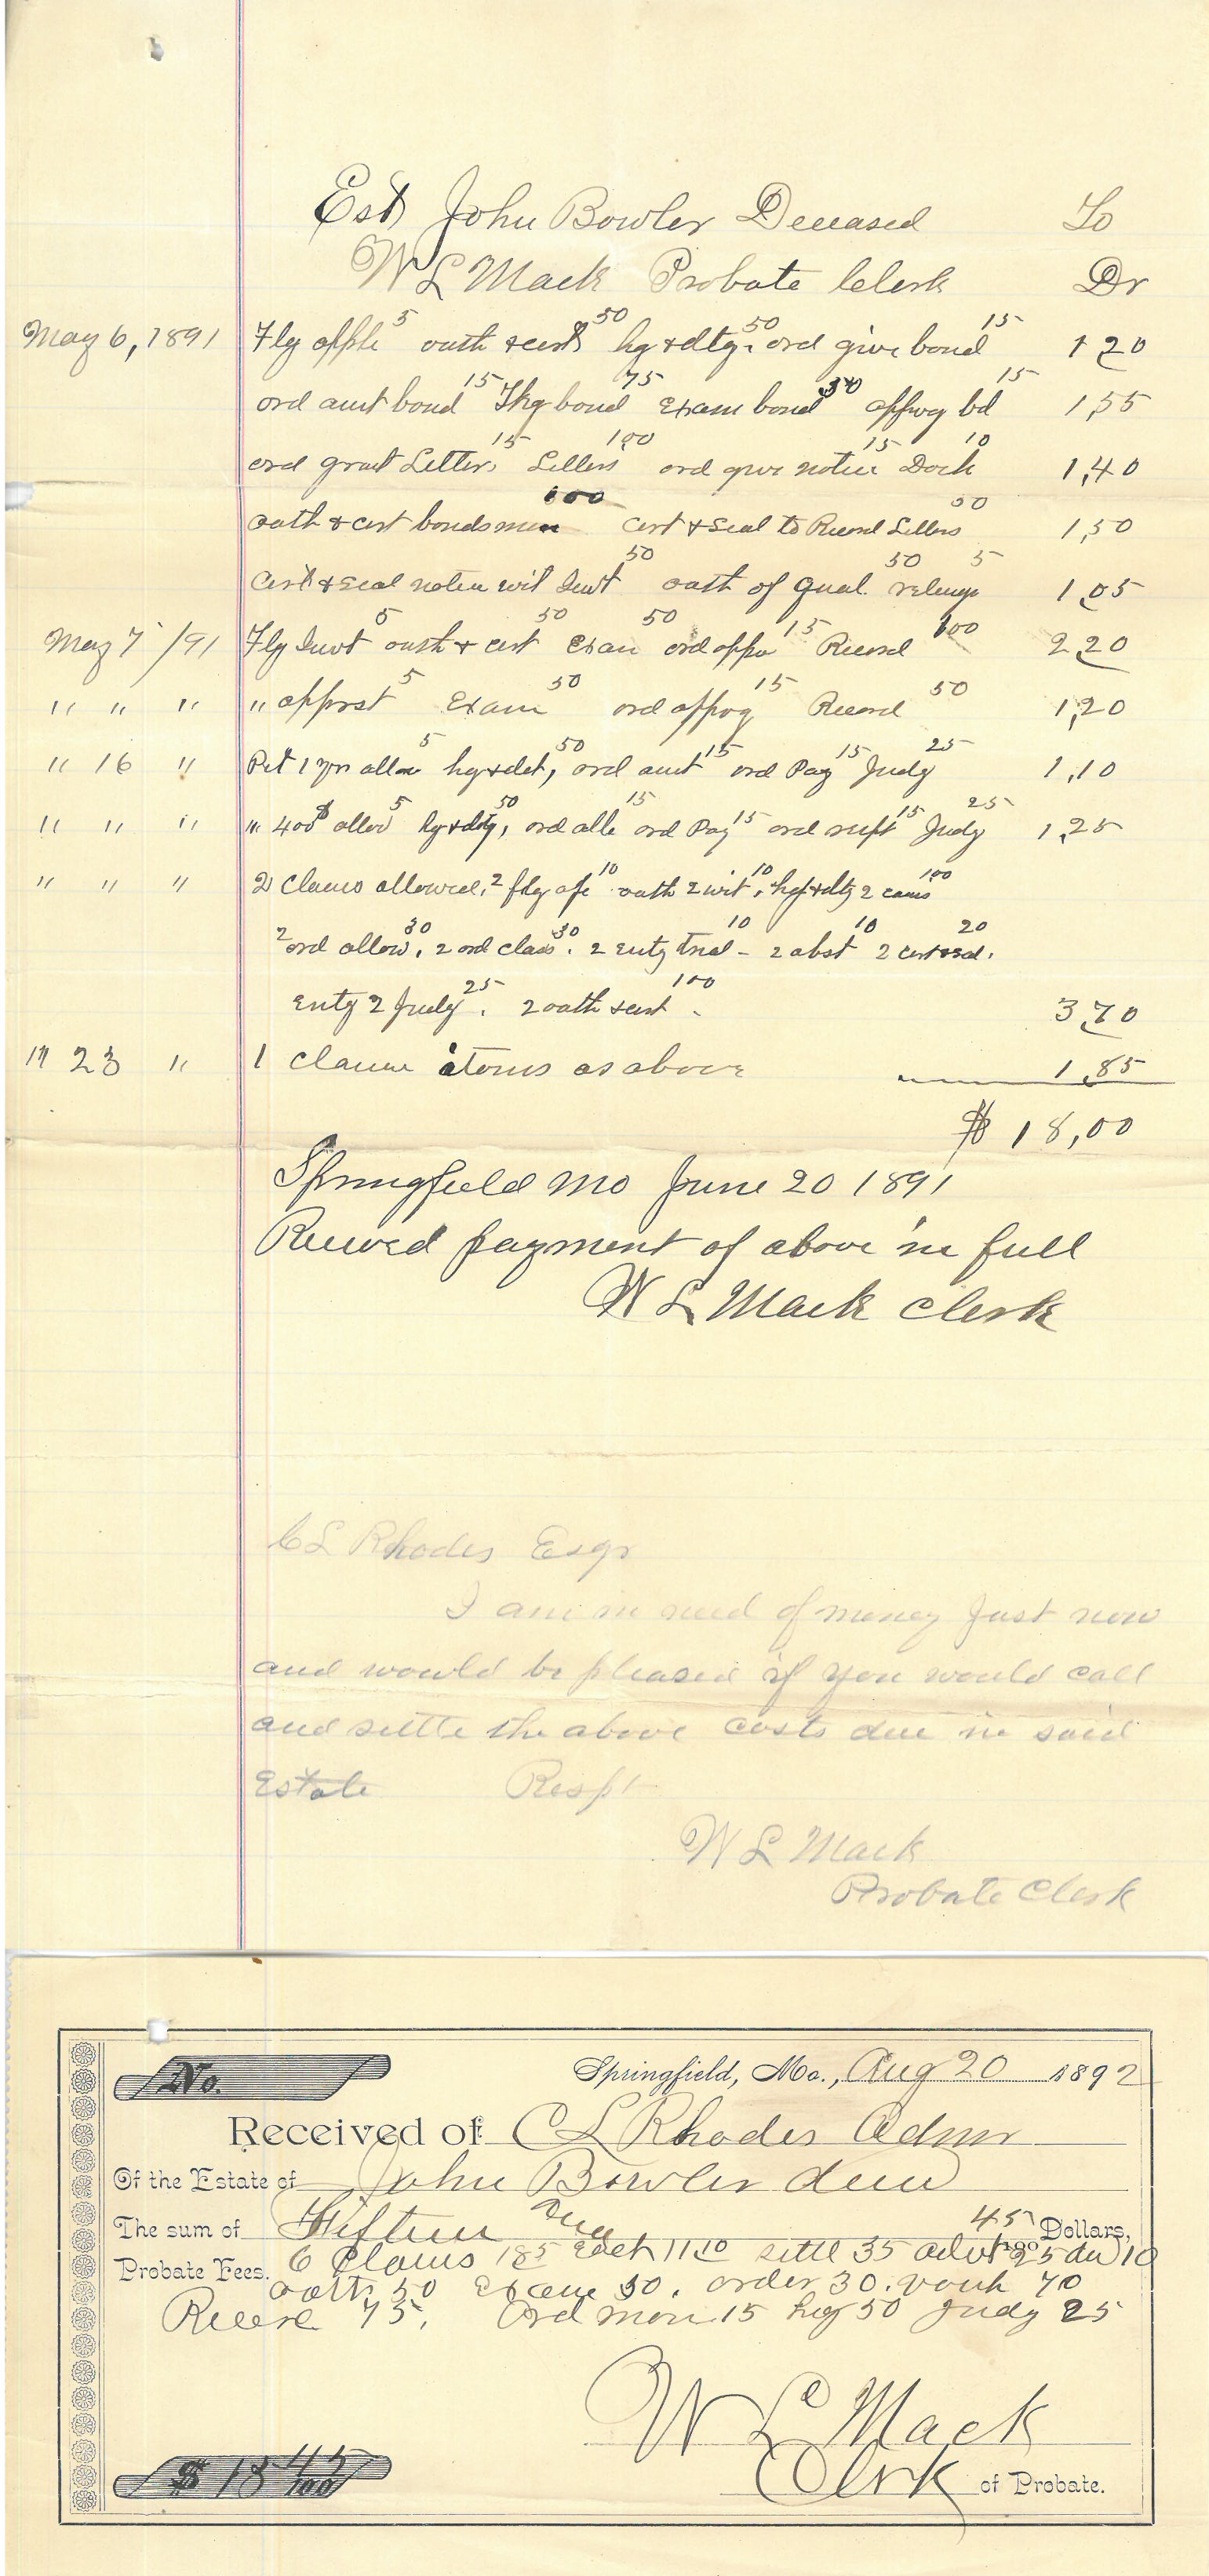 Est John Bowler Deceased To
W L Mack Probate Clerk Dr
May 6, 1891 Flg applc 5 oath & cert 50 hg & dtg. 50 ord give bond 15 1 20
ord amt bond 15 Tkg bond 75 Exam bond 50 apprvg bd 15 1,55
ord grant Letters 15 Letters 100 ord give notice 15 Dock 10 1,40
oath & cert bondsmen 100 Cert & Seal to Record Letters 50 1,50
Cert & seal notice wit Invt 50 oath of qual. 50 5 1 05
May 7 /91 Flg Invt 5 oath & cert 50 Exam 50 ord appro 15 Record 100 2 20
" " " " apprst 5 Exam 50 ord apprvg 15 Record 50 1,20
" 16 " Pet 1 yrs allow 5 hg & det, 50 ord amt 15 ord Pay 15 Judg 25 1,10
" " " " 400$ allow 5 hg & dtg, 50 ord allc 15 ord Pay 15 ord 15 Judg 25 1,25
" " " 2 Claims allowed, 2 flg afc 10 oath 2 wit, 10 hg & dtg 2 caus 100
2 ord allow, 30 2 ord class. 30 2 Enty trial 10 - 2 abst 10 2 cert & sd. 20
Enty 2 Judg 25. 2 oath & cert 100 - 3 70
" 23 " 1 Claim items as above 1,85
$ 18,00
Springfield Mo June 20 1891
Received payment of above in full
W L Mack Clerk
C L Rhodes Esqr
I am in need of money Just now
and would be pleased if you would call
and settle the above costs due in said
Estate Respt
W L Mack
Probate Clerk
No.
Springfield, Mo., Aug 20 1892
Received of C L Rhodes Admr
Of the Estate of John Bowler decd
The sum of Fifteen and 45/100 Dollars,
Probate Fees. 6 Claims 185 Each 11 10 settl 35 advt 25 dkt 10
oath 50 Exam 50. order 30. vouch 70
Record 75, Ord mon 15 hg 50 Judg 25
W L Mack
Clerk of Probate.
$ 15 45/100